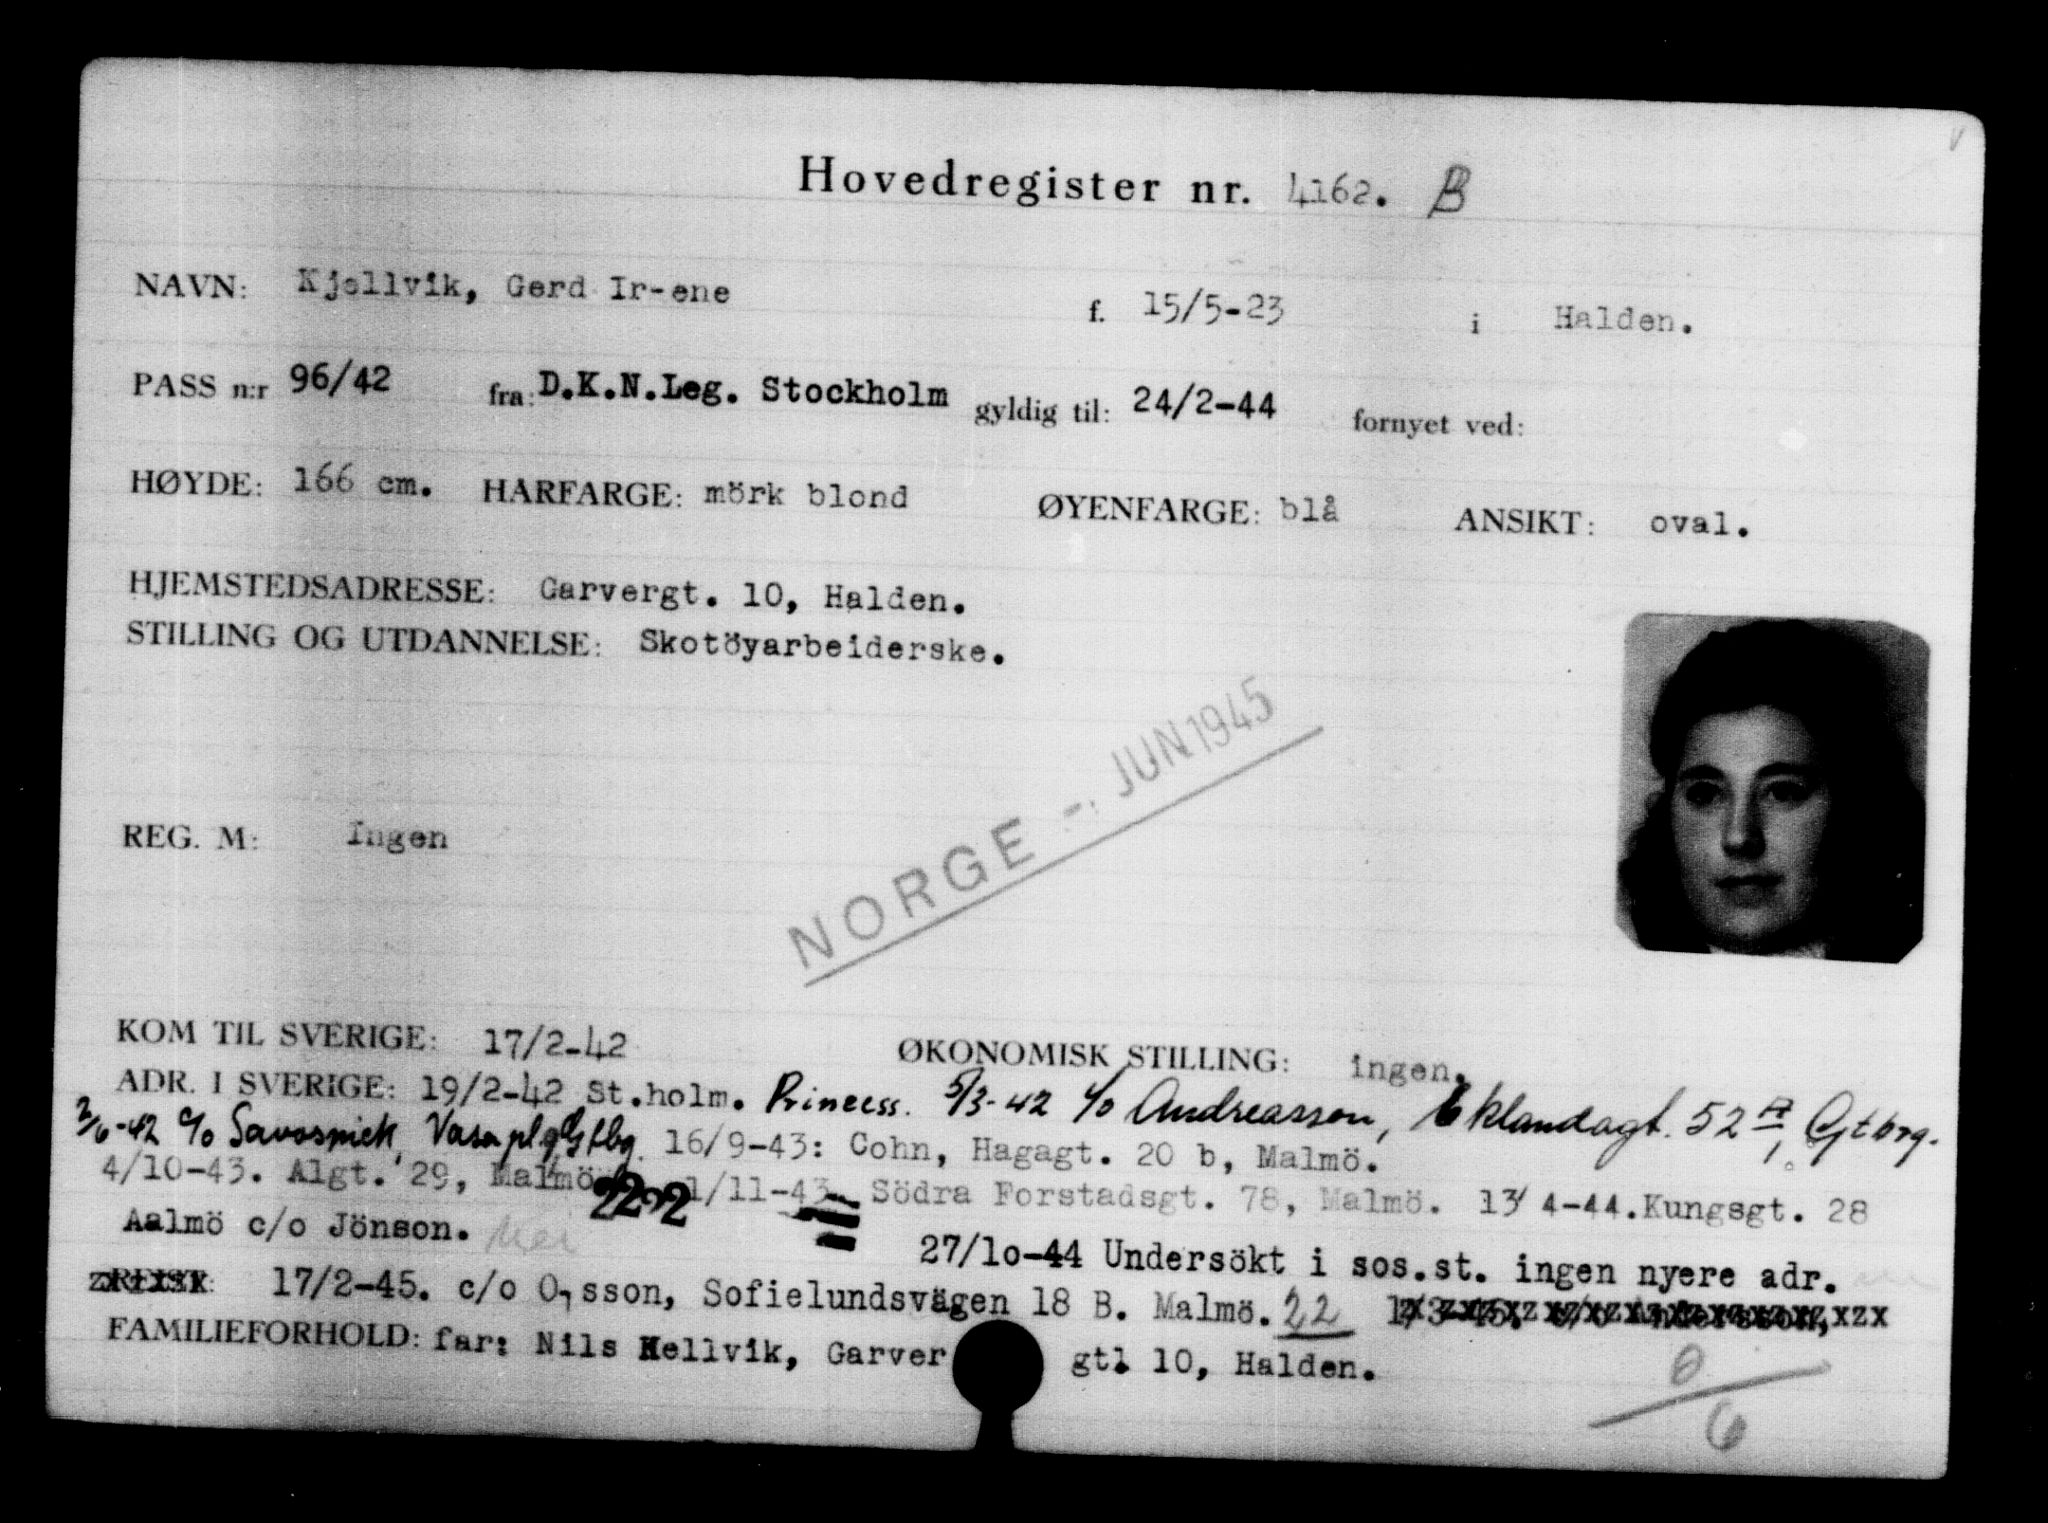 Hovedregister nr. 4162. B
NAVN: Kjellvik, Gerd Ir-ene f. 15/5-23 i Halden.
PASS n:r 96/42 fra: D.K.N.Leg. Stockholm gyldig til: 24/2-44 fornyet ved:
HØYDE: 166 cm. HARFARGE: mörk blond ØYENFARGE: blå ANSIKT: oval.
HJEMSTEDSADRESSE: Garvergt. 10, Halden.
STILLING OG UTDANNELSE: Skotöyarbeiderske.
NORGE -. JUN 1945
REG. M: Ingen
KOM TIL SVERIGE: 17/2-42 ØKONOMISK STILLING: ingen.
ADR. I SVERIGE: 19/2-42 St.holm. Princess. 5/3-42 c/o Andreasson, Eklandagt. 52 Gtbrg.
2/6-42 c/o Savosnick, Vasaplg Gtbg. 16/9-43: Cohn, Hagagt. 20 b, Malmö.
4/10-43. Algt. 29, Malmö 1/11-43 Södra Forstadsgt. 78, Malmö. 13/4-44. Kungsgt. 28
Aalmö c/o Jönson.
27/10-44 Undersökt i sos.st. ingen nyere adr.
REIST: 17/2-45. c/o O,sson, Sofielundsvägen 18 B. Malmö. 22 1/3-45. c/o Andersson,
FAMILIEFORHOLD: far: Nils Hellvik, Garver gt. 10, Halden.
0/6